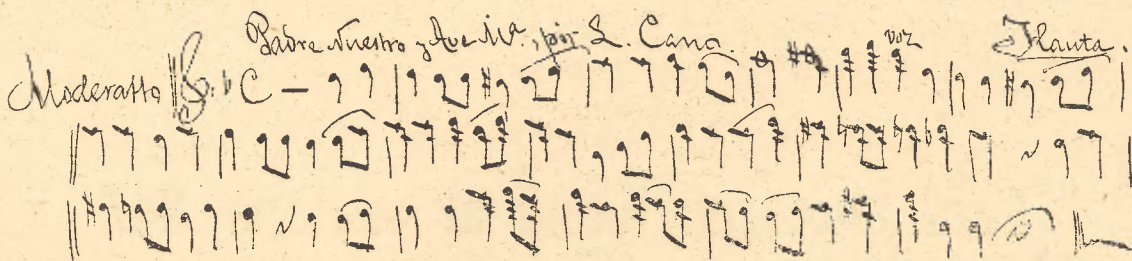 Padre Nuestro y Ave Mª., por, L. Cano. Flauta.
Moderatto
voz